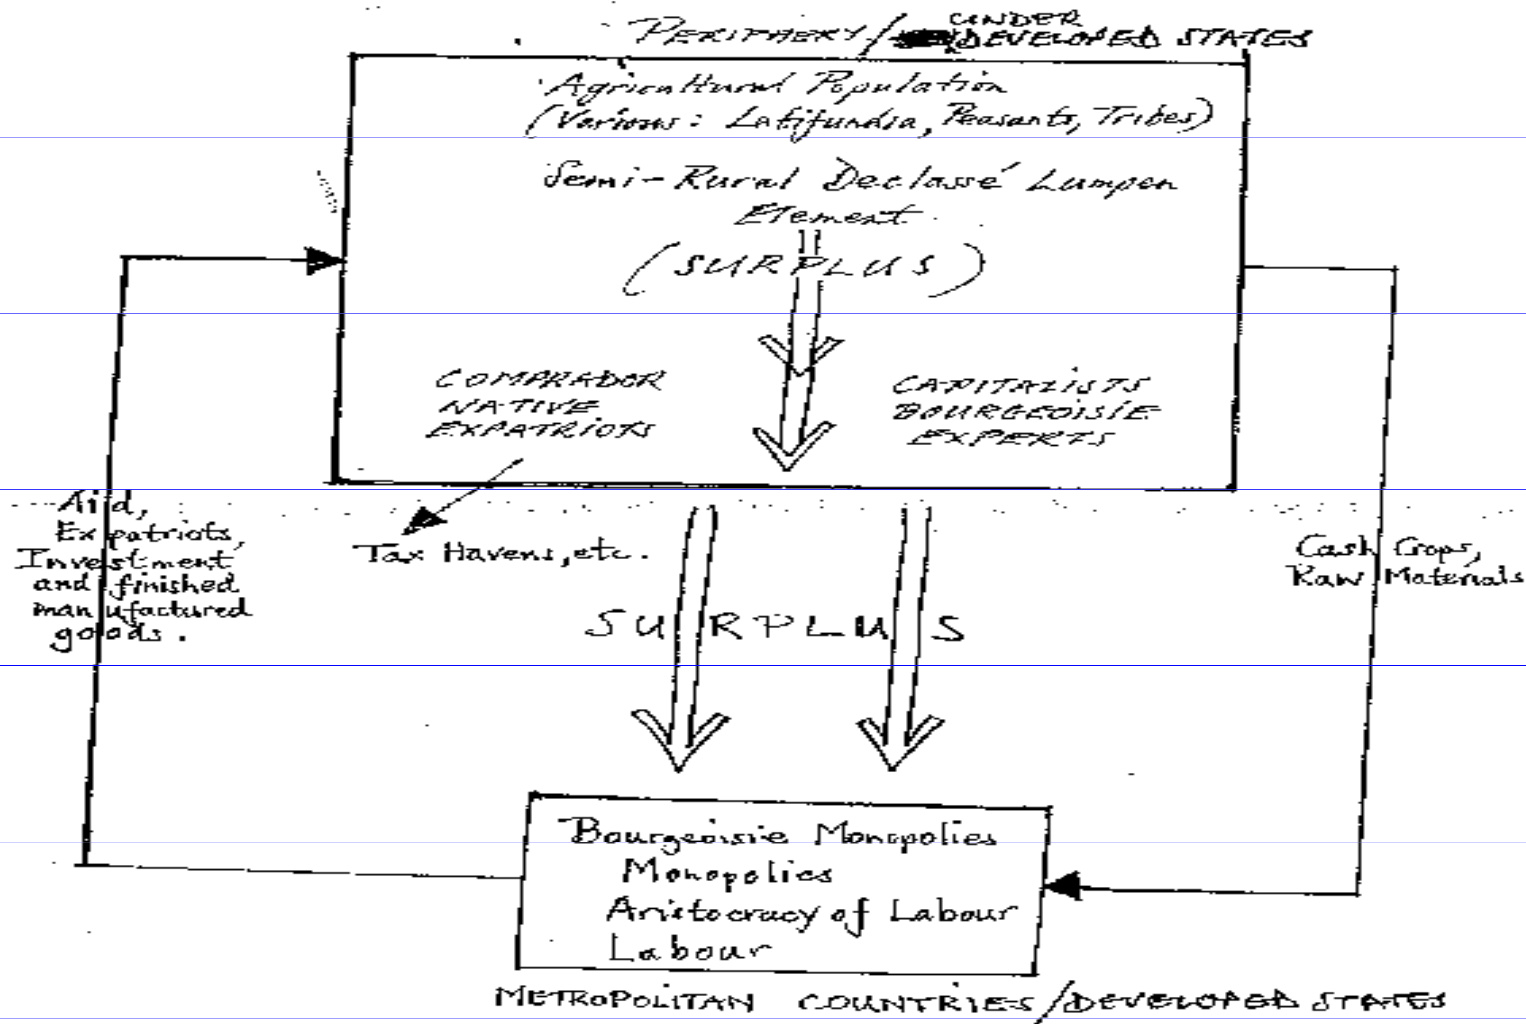 PERIPHERY/UNDER DEVELOPED STATES
Agricultural Population
(Various: Latifundia, Peasants, Tribes)
Semi-Rural Declassé Lumpen
Element
(SURPLUS)
COMPRADOR
NATIVE
EXPATRIOTS
CAPITALISTS
BOURGEOISIE
EXPERTS
Aid,
Expatriots,
Investment
and finished
manufactured
goods.
Tax Havens, etc.
Cash Crops,
Raw Materials
SURPLUS
Bourgeoisie Monopolies
Monopolies
Aristocracy of Labour
Labour
METROPOLITAN COUNTRIES/DEVELOPED STATES